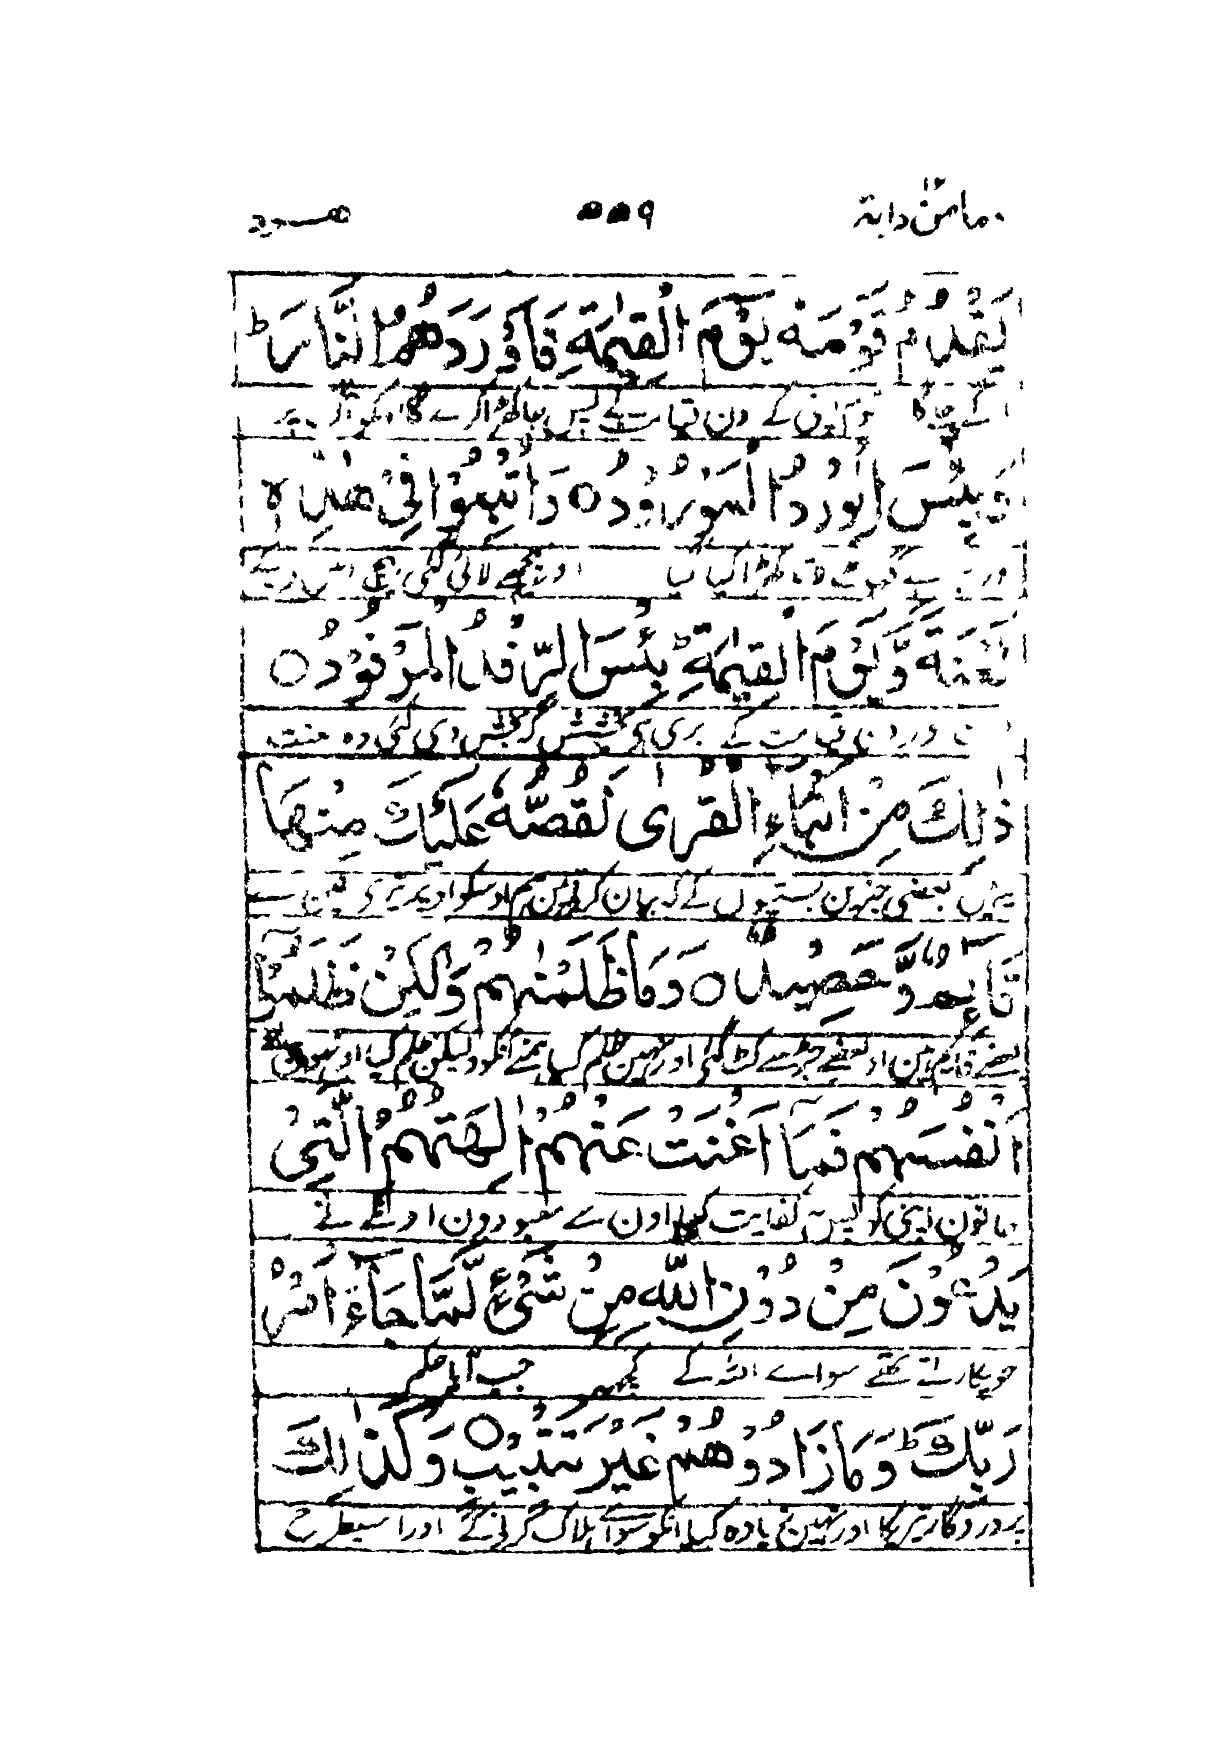 ومامن دابة ٥٥٩ هود
يَقْدُمُ قَوْمَهٗ يَوْمَ الْقِيٰمَةِ فَاَوْرَدَهُمُ النَّارَ ؕ
کے دن قیامت کے پس کھڑا کرے گا اونکو آگ پر
وَبِئْسَ الْوِرْدُ الْمَوْرُوْدُ ○ وَاُتْبِعُوْا فِيْ هٰذِهٖ
گھاٹ کھڑا کیا گیا اور پیچھے لائی گئی بیچ اس دنیا کے
لَعْنَةً وَّيَوْمَ الْقِيٰمَةِ ؕ بِئْسَ الرِّفْدُ الْمَرْفُوْدُ ○
اور دن قیامت کے بری ہی بخشش کہ بخشش دی گئی وہ
ذٰلِكَ مِنْ اَنْۢبَآءِ الْقُرٰى نَقُصُّهٗ عَلَيْكَ مِنْهَا
یہ بعضی خبرون بستیوں کے کہ بیان کرتے ہین ہم اوسکو اوپر تیری بعضی ان سے
قَآئِمٌ وَّحَصِيْدٌ ○ وَمَا ظَلَمْنٰهُمْ وَلٰكِنْ ظَلَمُوْۤا
بعضے قایم ہین اور بعضے جڑ سے کٹ گئی اور نہین ظلم کیا ہمنے انکو ولیکن ظلم کیا اونہون نے
اَنْفُسَهُمْ فَمَاۤ اَغْنَتْ عَنْهُمْ اٰلِهَتُهُمُ الَّتِيْ
جانون اپنی کو پس نہ کفایت کیا اون سے معبودون اونکے نے
يَدْعُوْنَ مِنْ دُوْنِ اللّٰهِ مِنْ شَيْءٍ لَّمَّا جَآءَ اَمْرُ
جو پکارتے تھے سواے اللہ کے کچھ جب آیا حکم
رَبِّكَ ؕ وَمَا زَادُوْهُمْ غَيْرَ تَتْبِيْبٍ ○ وَكَذٰلِكَ
پروردگار تیریکا اور نہین زیادہ کیا انکو سواے ہلاک کرنے کے اور اسیطرح